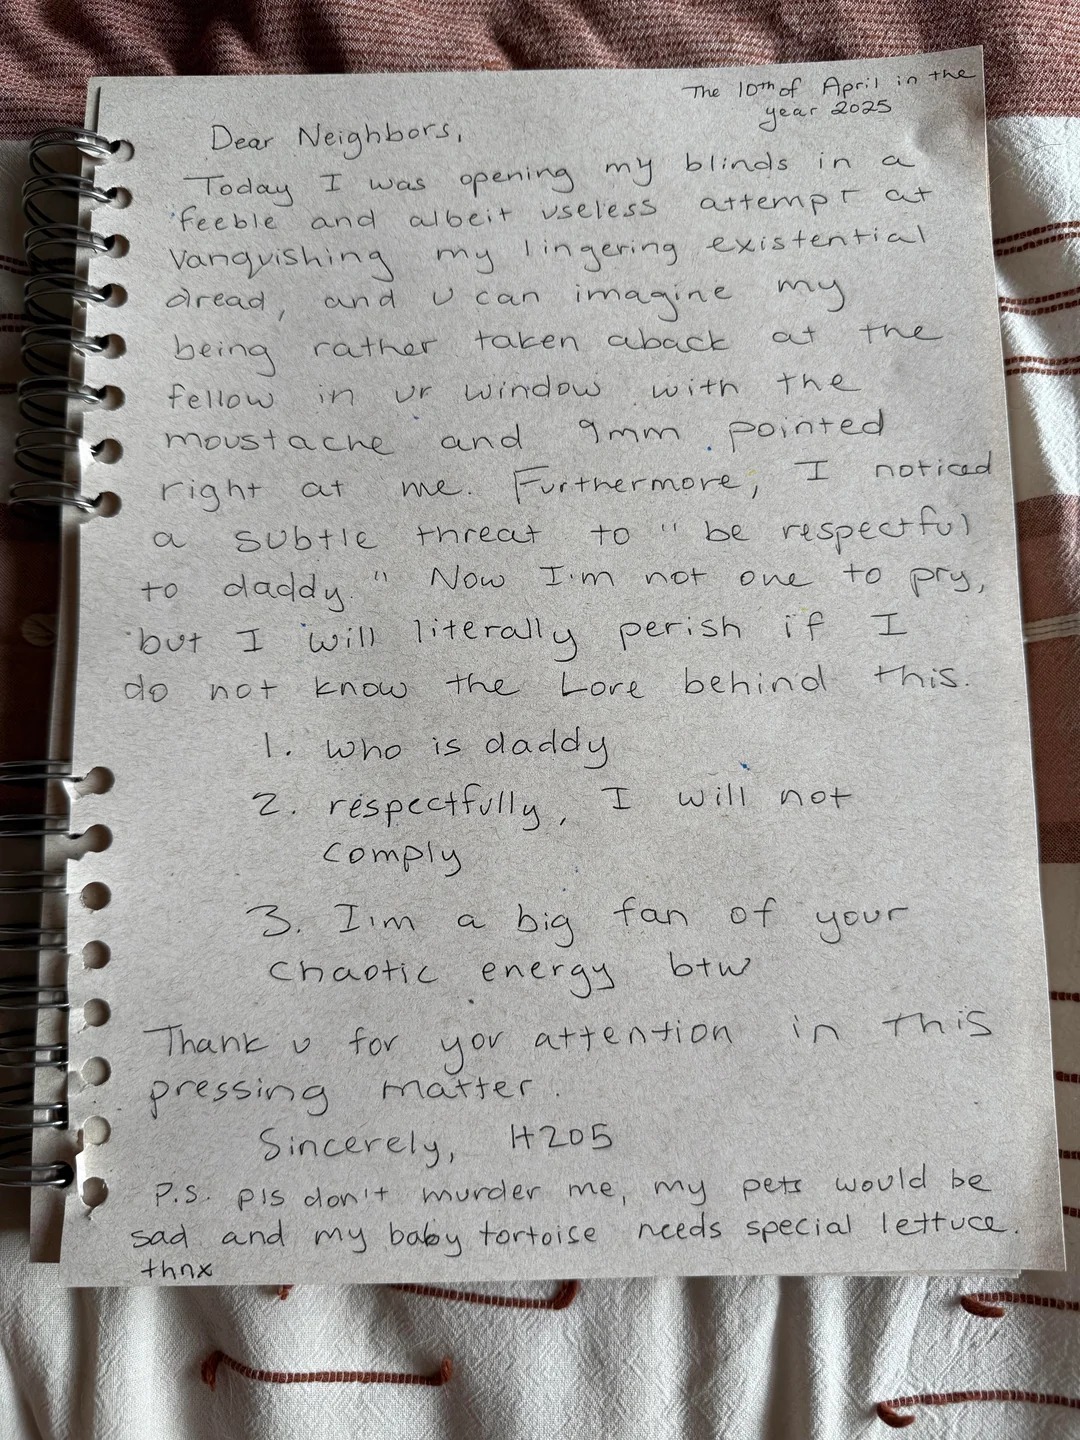 The 10th of April in the
year 2025
Dear Neighbors,
Today I was opening my blinds in a
feeble and albeit useless attempt at
vanquishing my lingering existential
dread, and u can imagine my
being rather taken aback at the
fellow in ur window with the
moustache and 9mm pointed
right at me. Furthermore, I noticed
a subtle threat to "be respectful
to daddy." Now I'm not one to pry,
but I will literally perish if I
do not know the Lore behind this.
1. who is daddy
2. respectfully, I will not
comply
3. I'm a big fan of your
chaotic energy btw
Thank u for yor attention in this
pressing matter.
Sincerely, H205
P.S. pls don't murder me, my pets would be
sad and my baby tortoise needs special lettuce.
thnx